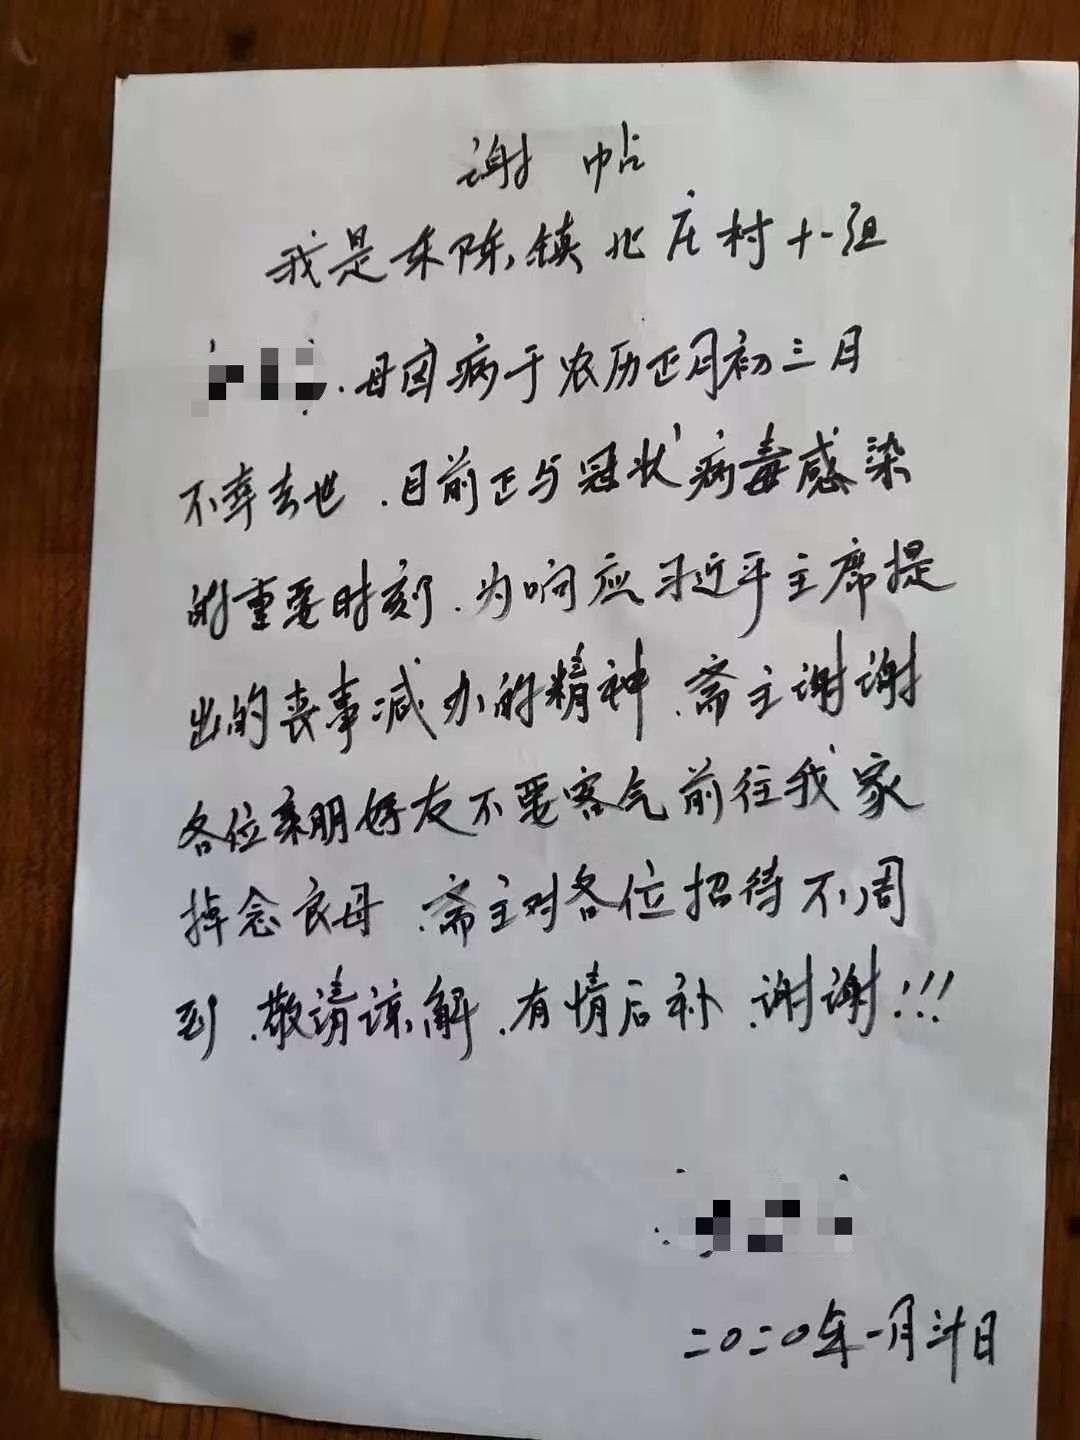 谢帖
我是东陈镇北庄村十一组
母因病于农历正月初三月
不幸去世.目前正与冠状病毒感染
的重要时刻.为响应习近平主席提
出的丧事减办的精神.斋主谢谢
各位亲朋好友不要客气前往我家
掉念良母.斋主对各位招待不周
到.敬请谅解.有情后补.谢谢!!!
二〇二〇年一月卅日